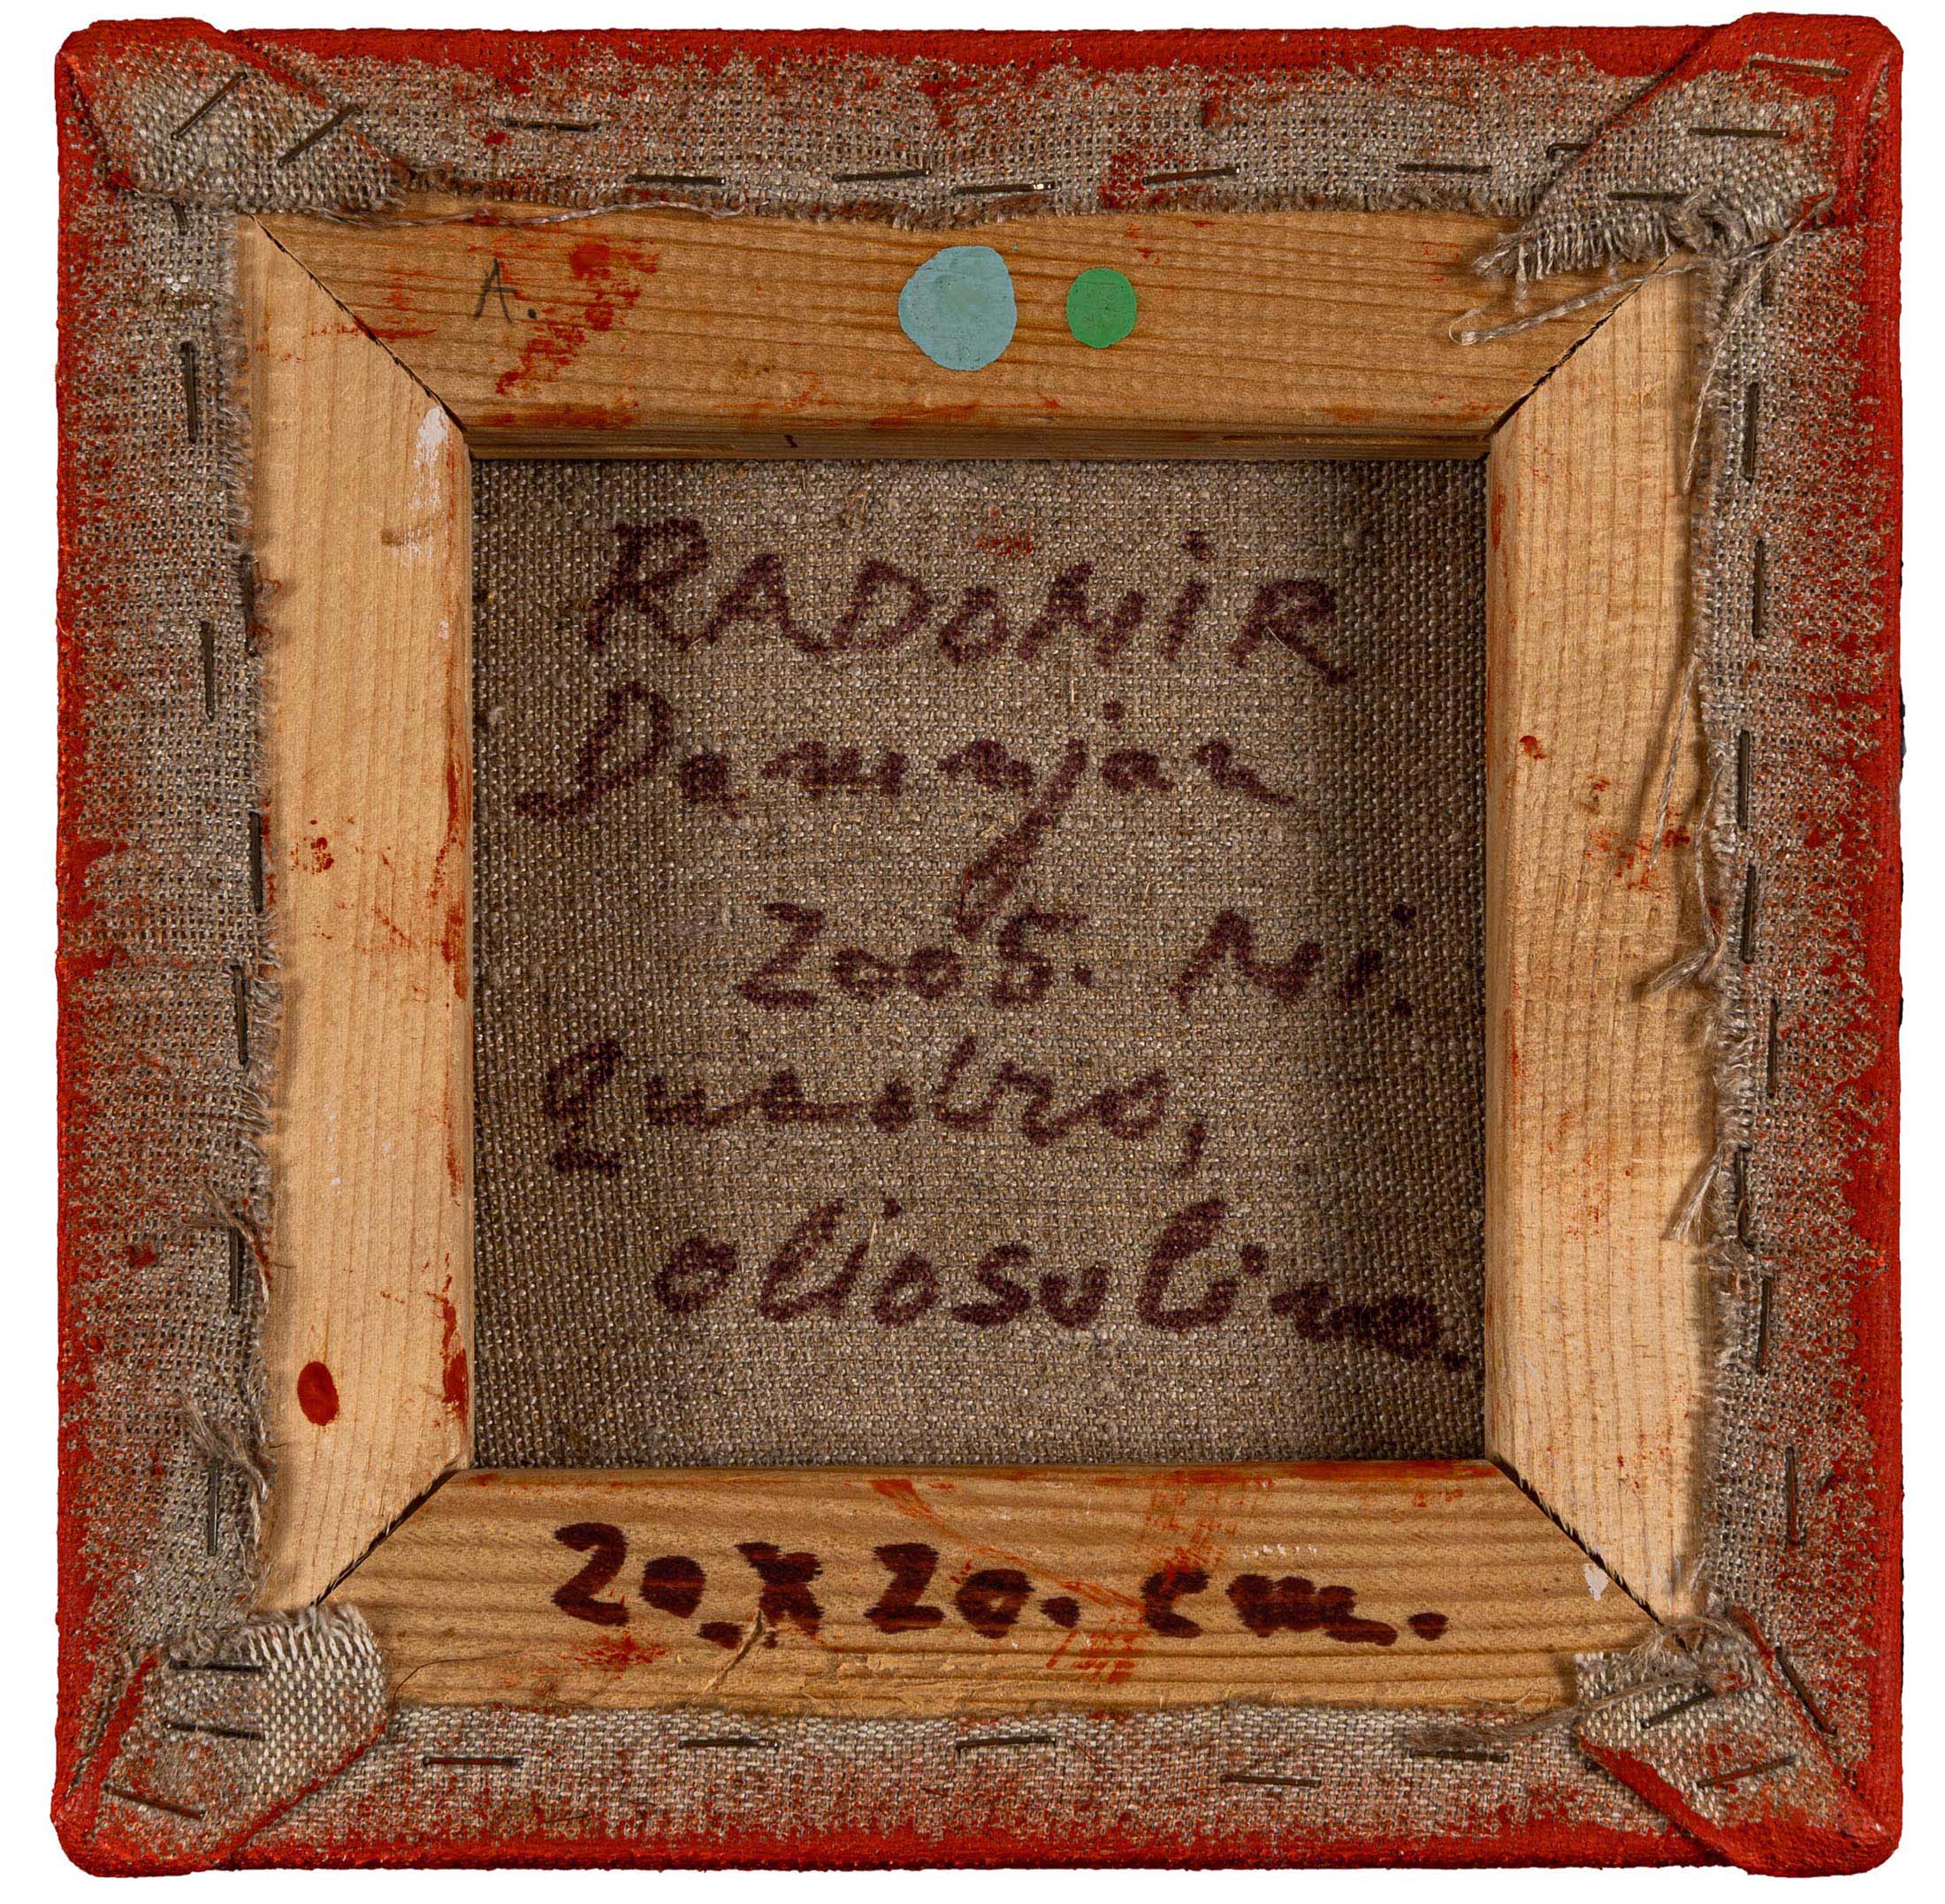 A.
RADOMIR
Damnjan
2005. Mi.
Quadro,
oliosulino.
20 x 20. cm.